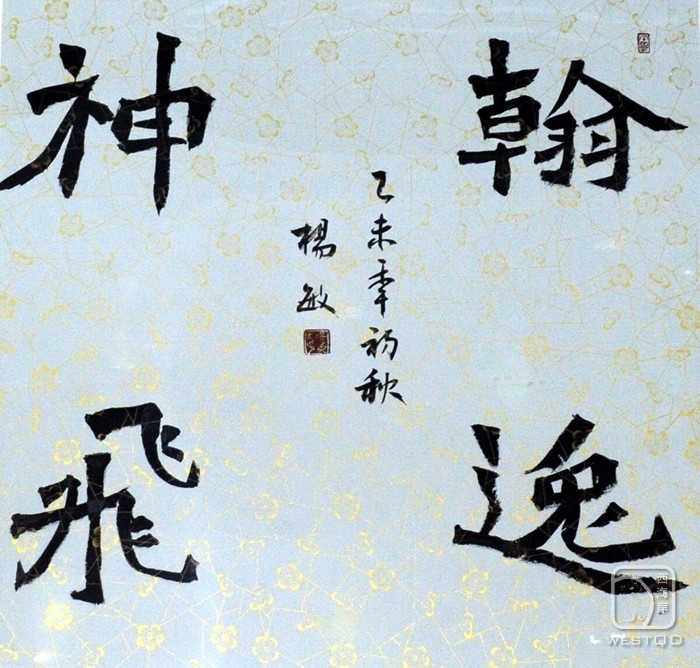 翰逸
神飛
乙未年初秋
楊敏
西海岸
WESTQD